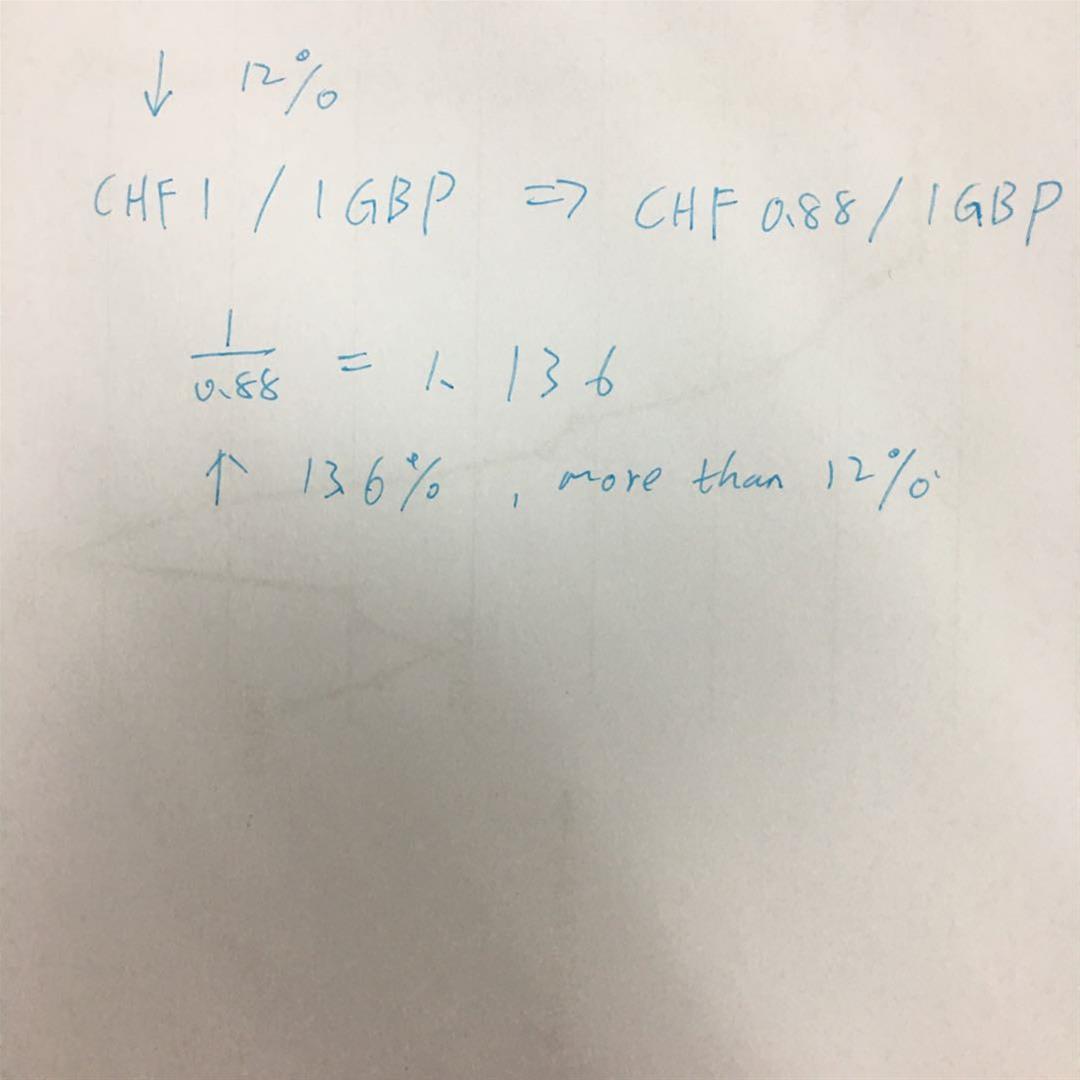 ↓ 12%
CHF 1 / 1 GBP => CHF 0.88 / 1 GBP
1/0.88 = 1.136
↑ 13.6%, more than 12%.